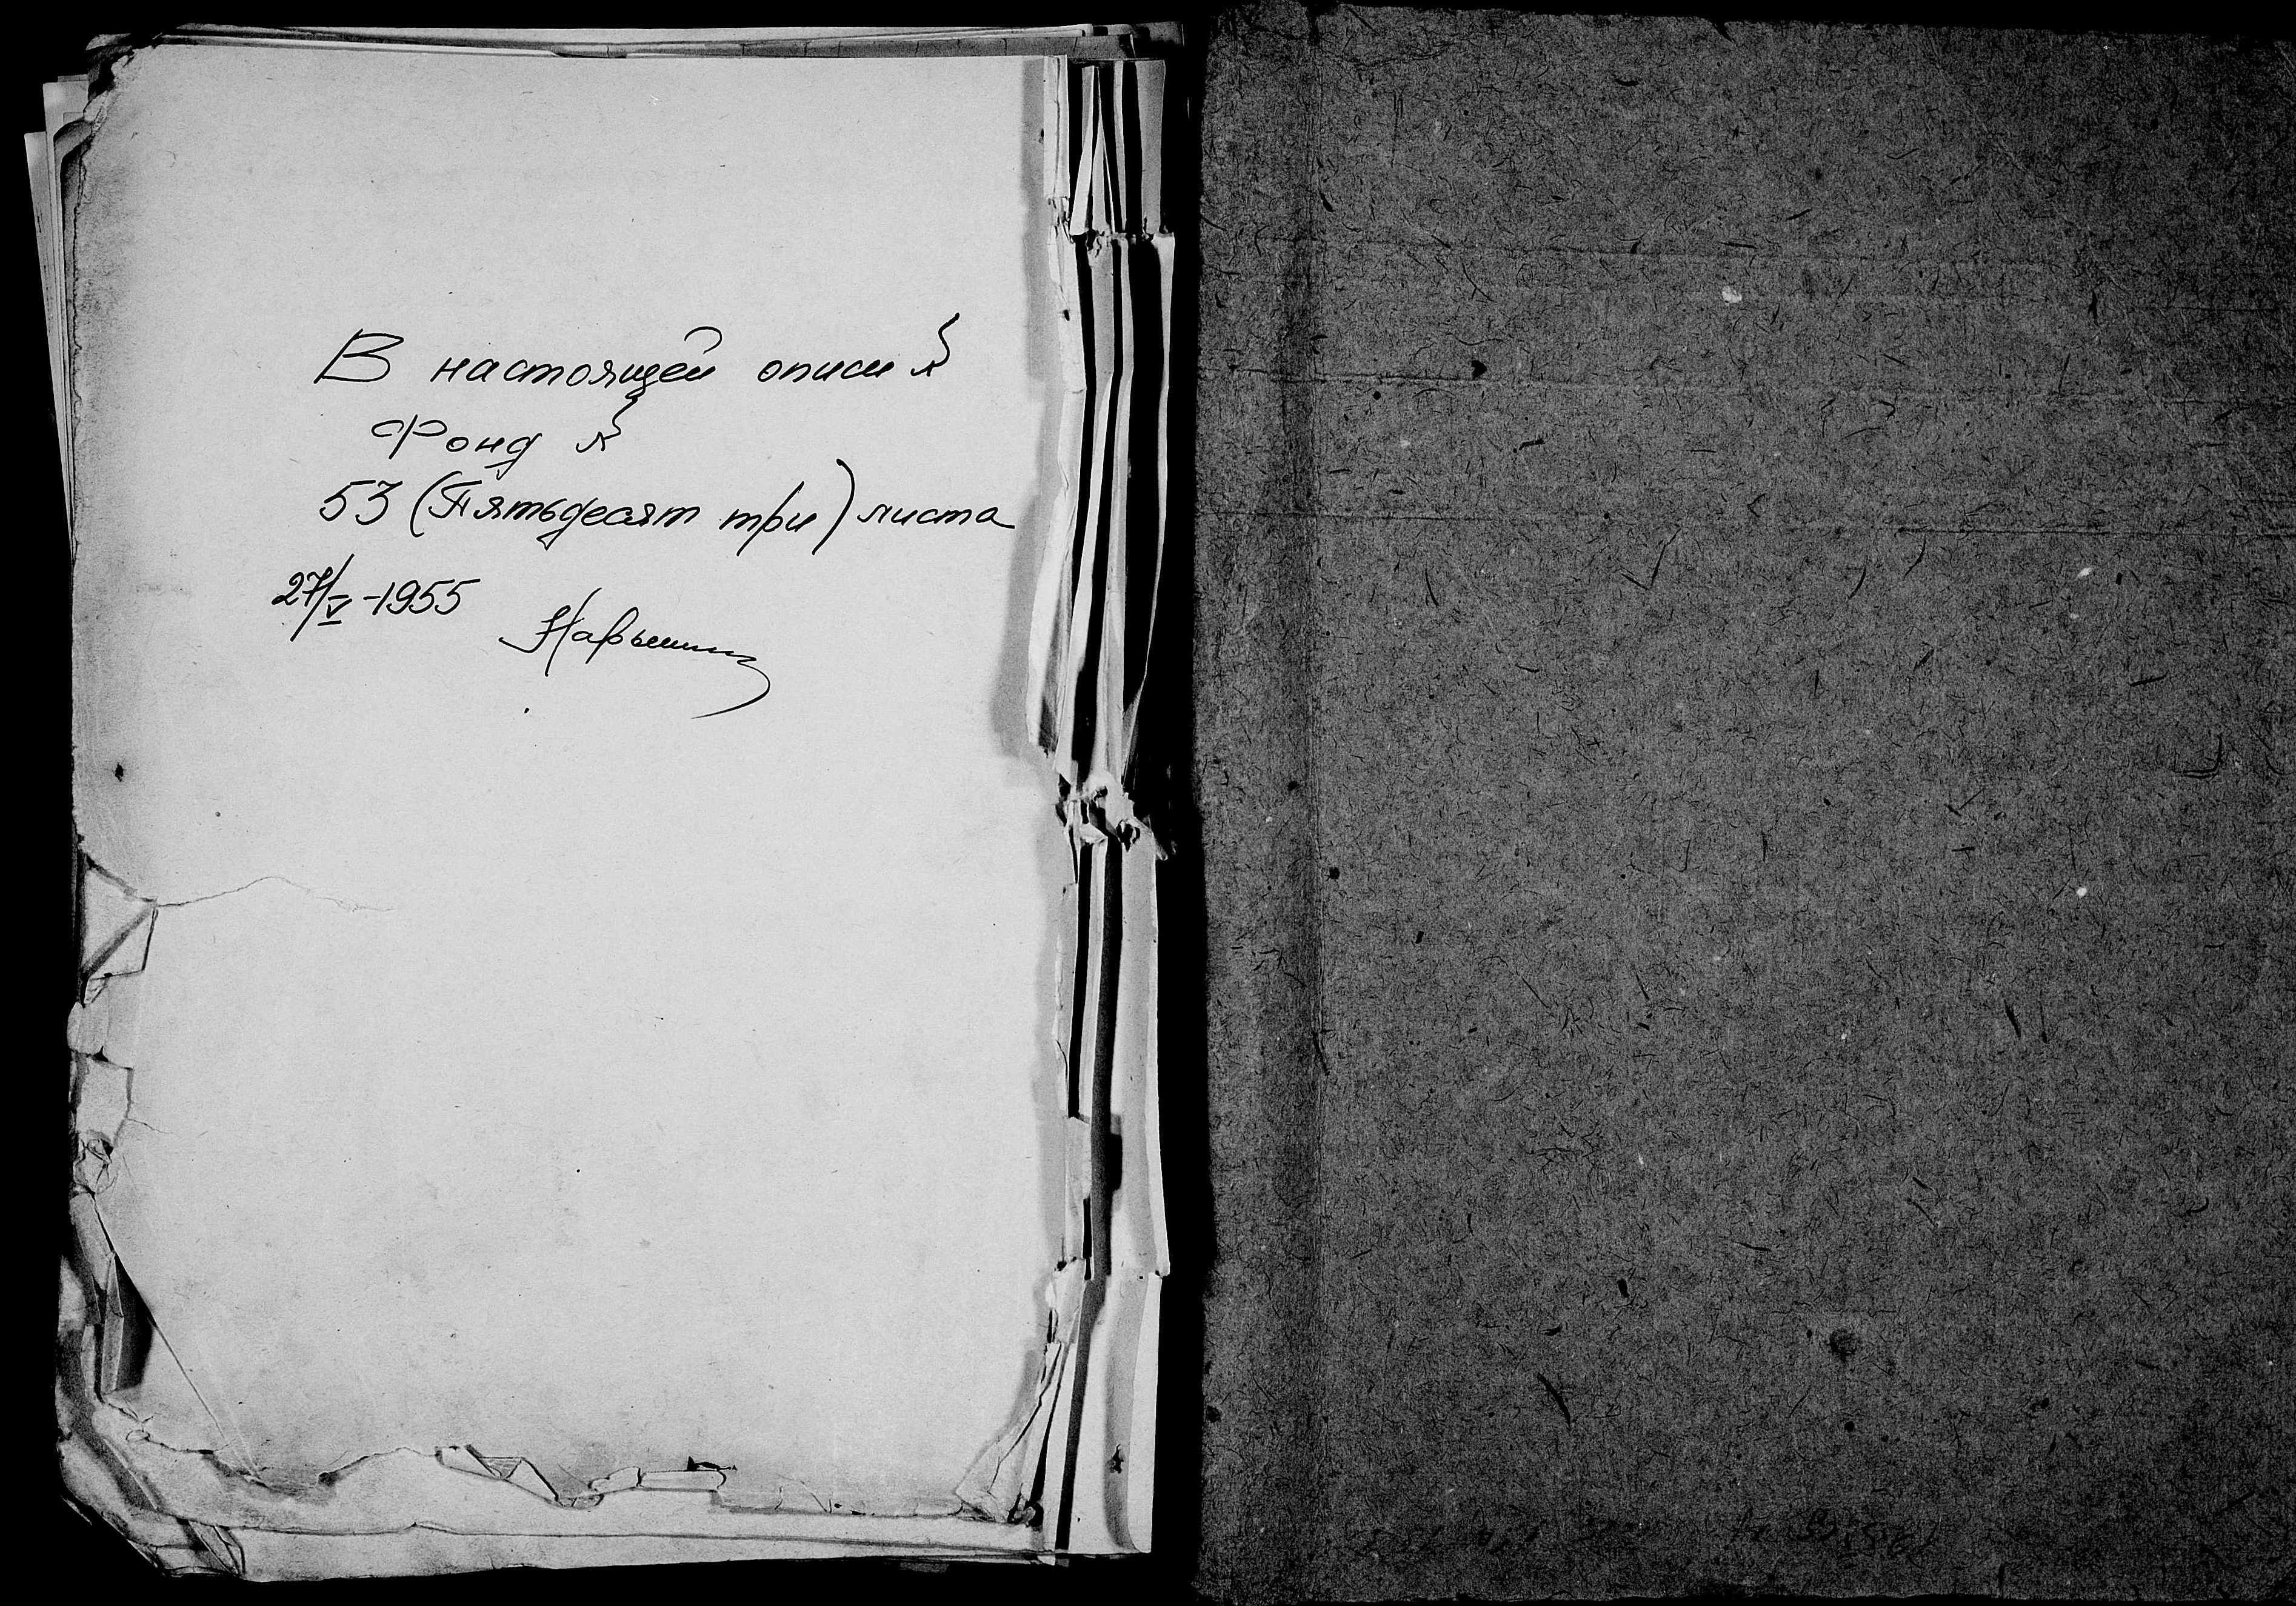 В настоящей описи №
Фонд №
53 (Пятьдесят три) листа
27/V-1955